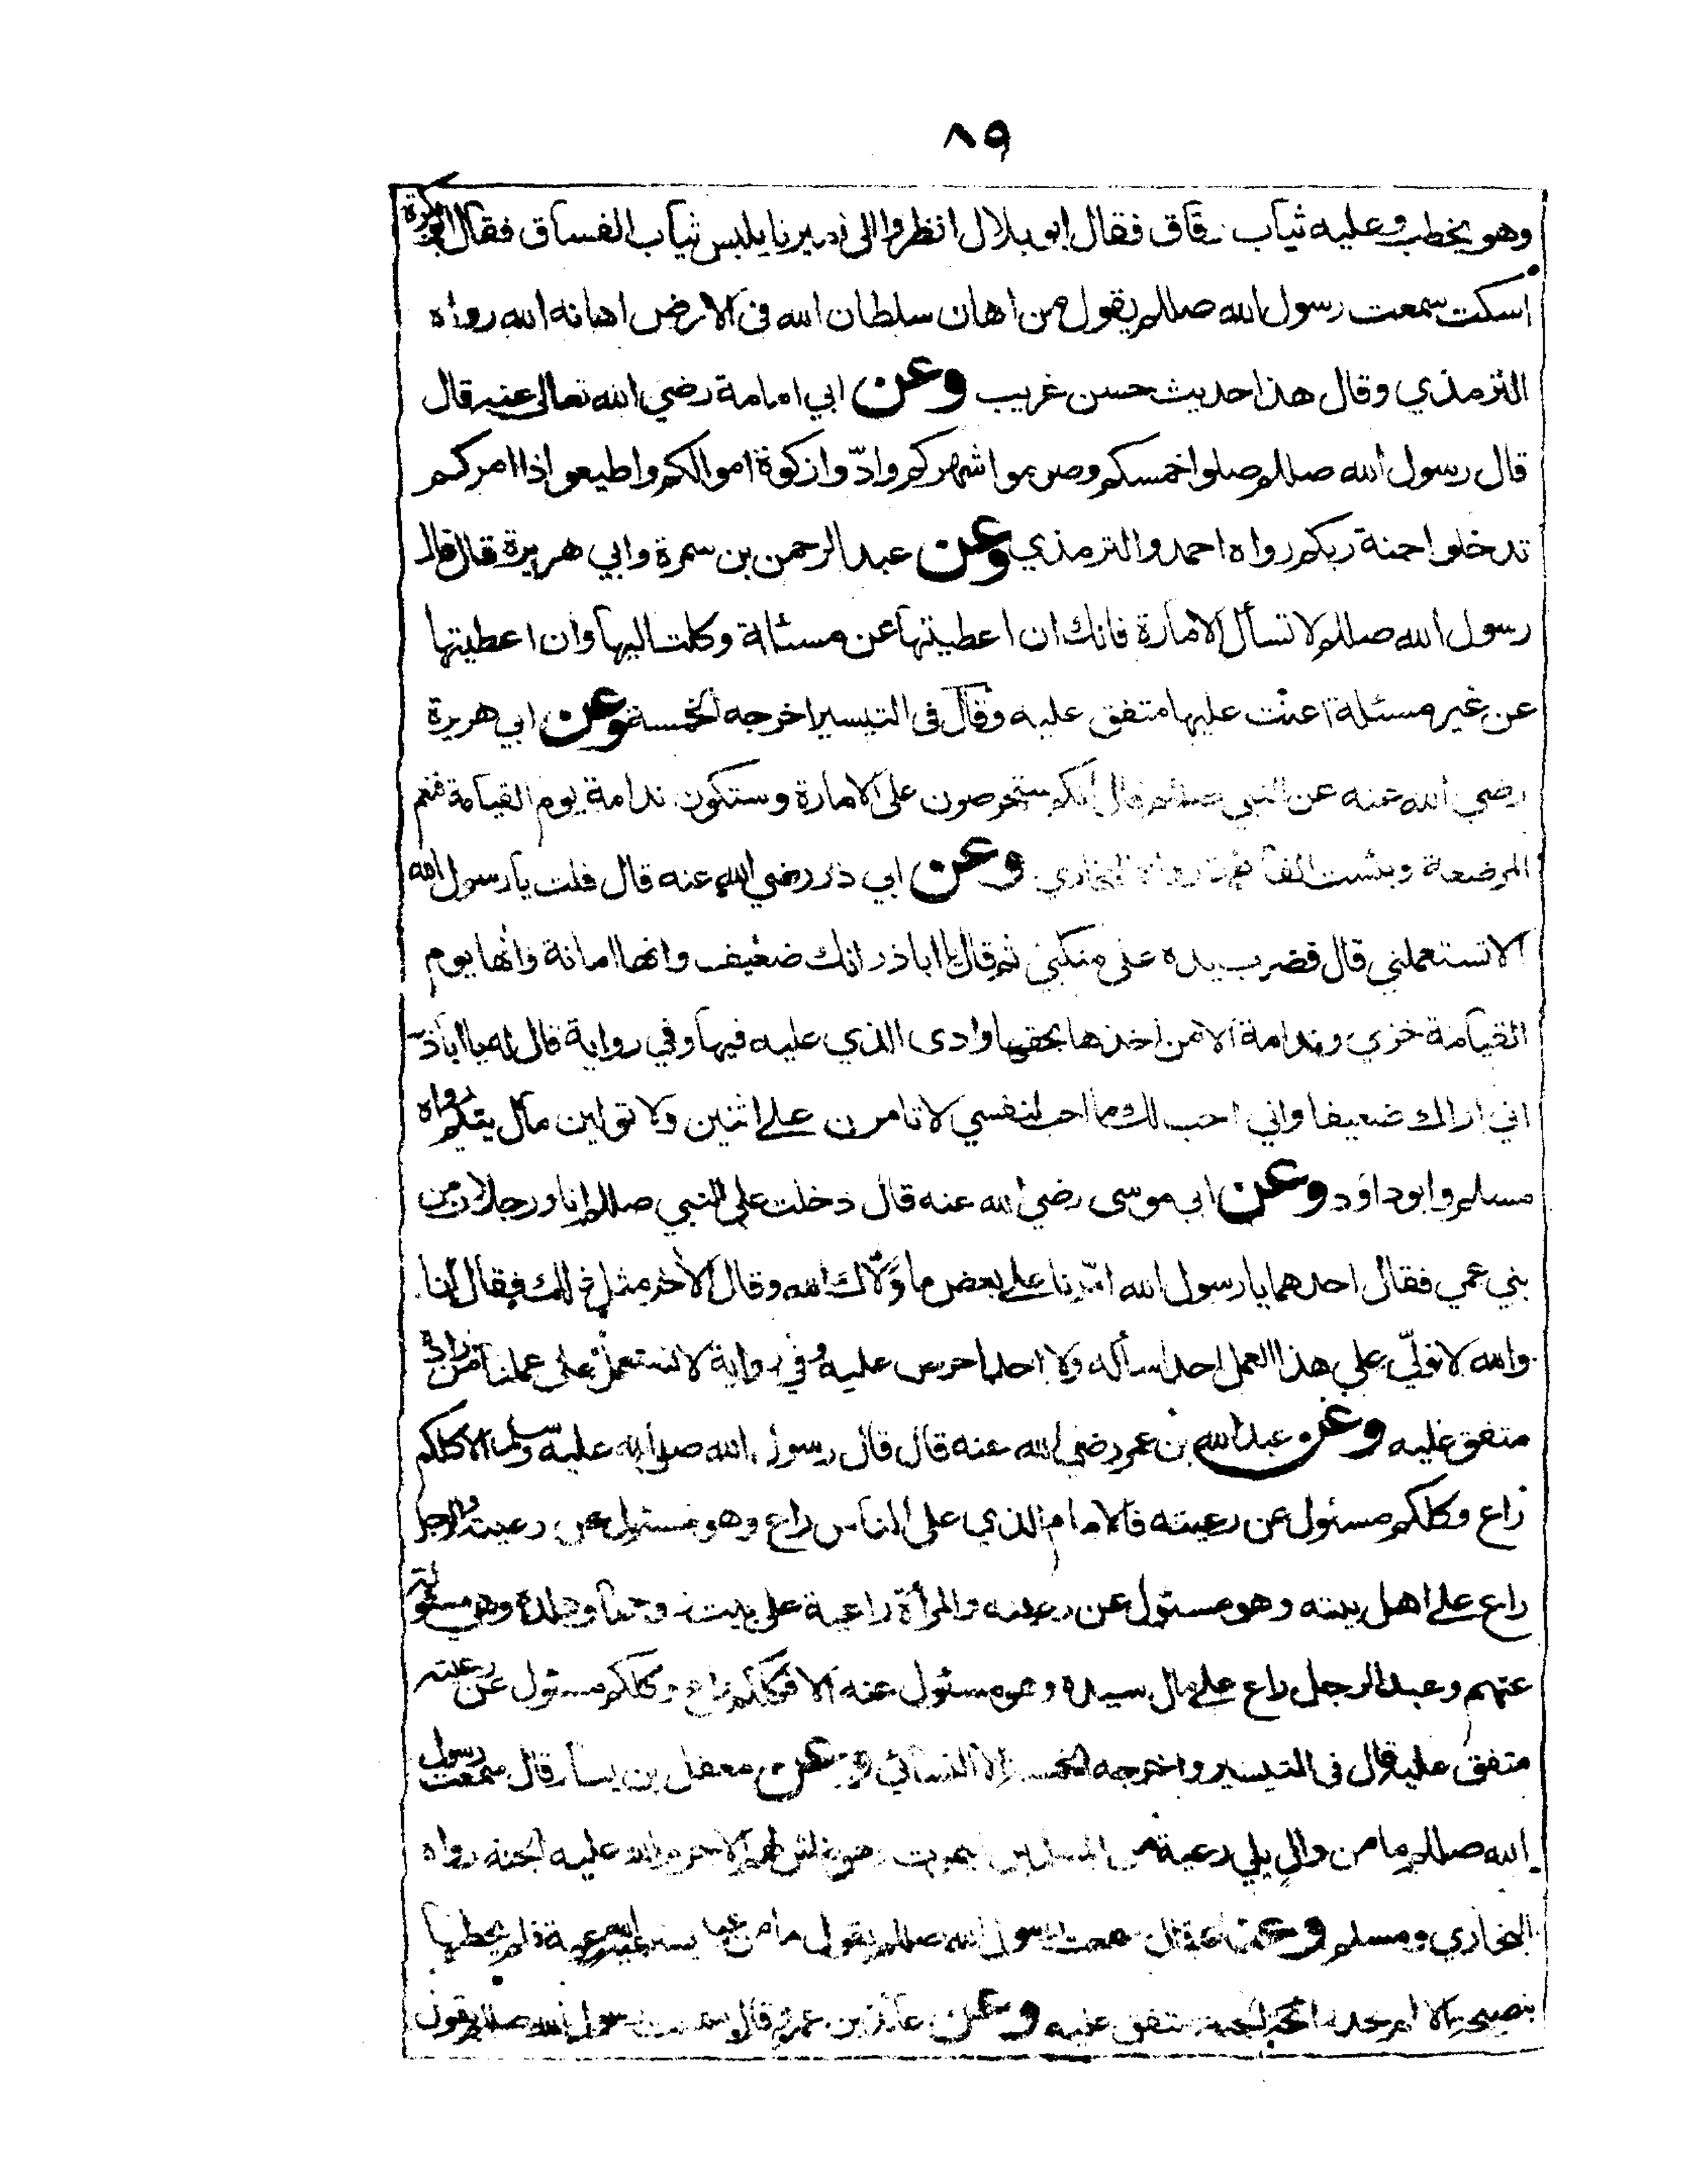 ٨٩
وهو يخطب وعليه ثياب رقاق فقال ابو بلال انظروا الى اميرنا يلبس ثياب الفساق فقال ابو بكرة
اسكت سمعت رسول الله صللم يقول من اهان سلطان الله فى الارض اهانه الله رواه
الترمذي وقال هذا حديث حسن غريب وعن ابي امامة رضي الله تعالى عنه قال
قال رسول الله صللم صلوا خمسكم وصوموا شهركم وادّوا زكوة اموالكم واطيعوا ذا امركم
تدخلوا جنة ربكم رواه احمد والترمذي وعن عبد الرحمن بن سمرة وابي هريرة قال قال
رسول الله صللم لا تسأل الامارة فانك ان اعطيتها عن مسئلة وكلت اليها وان اعطيتها
عن غير مسئلة اعنت عليها متفق عليه وقال فى التيسير اخرجه الخمسة وعن ابي هريرة
رضي الله عنه عن النبي صللم قال انكم ستحرصون على الامارة وستكون ندامة يوم القيامة فنعم
المرضعة وبئست الفاطمة رواه البخاري وعن ابي ذر رضي الله عنه قال قلت يا رسول الله
الا تستعملني قال فضرب بيده على منكبي ثم قال يا اباذر انك ضعيف وانها امانة وانها يوم
القيامة خزي وندامة الا من اخذها بحقها وادى الذي عليه فيها وفي رواية قال له يا اباذر
اني اراك ضعيفا واني احب لك ما احب لنفسي لا تامرن على اثنين ولا تولين مال يتيم رواه
مسلم وابو داود وعن ابي موسى رضي الله عنه قال دخلت على النبي صللم انا ورجلان من
بني عمي فقال احدهما يا رسول الله امّرنا على بعض ما ولّاك الله وقال الاخر مثل ذلك فقال انا
والله لا نولّي على هذا العمل احدا سأله ولا احدا حرص عليه وفي رواية لا نستعمل على عملنا من اراده
متفق عليه وعن عبد الله بن عمر رضي الله عنه قال قال رسول الله صلى الله عليه وسلم الا كلكم
راع وكلكم مسئول عن رعيته فالامام الذي على الناس راع وهو مسئول عن رعيته والرجل
راع على اهل بيته وهو مسئول عن رعيته والمرأة راعية على بيت زوجها وولده وهي مسئولة
عنهم وعبد الرجل راع على مال سيده وهو مسئول عنه الا فكلكم راع وكلكم مسئول عن رعيته
متفق عليه قال فى التيسير واخرجه الخمسة الا النسائي وعن معقل بن يسار قال سمعت رسول
الله صللم ما من وال يلي رعية من المسلمين فيموت وهو غاش لهم الا حرم الله عليه الجنة رواه
البخاري ومسلم وعنه قال سمعت رسول الله صللم يقول ما من عبد يسترعيه الله رعية فلم يحطها
بنصيحة الا لم يجد رائحة الجنة متفق عليه وعن عائذ بن عمرو قال سمعت رسول الله صللم يقول